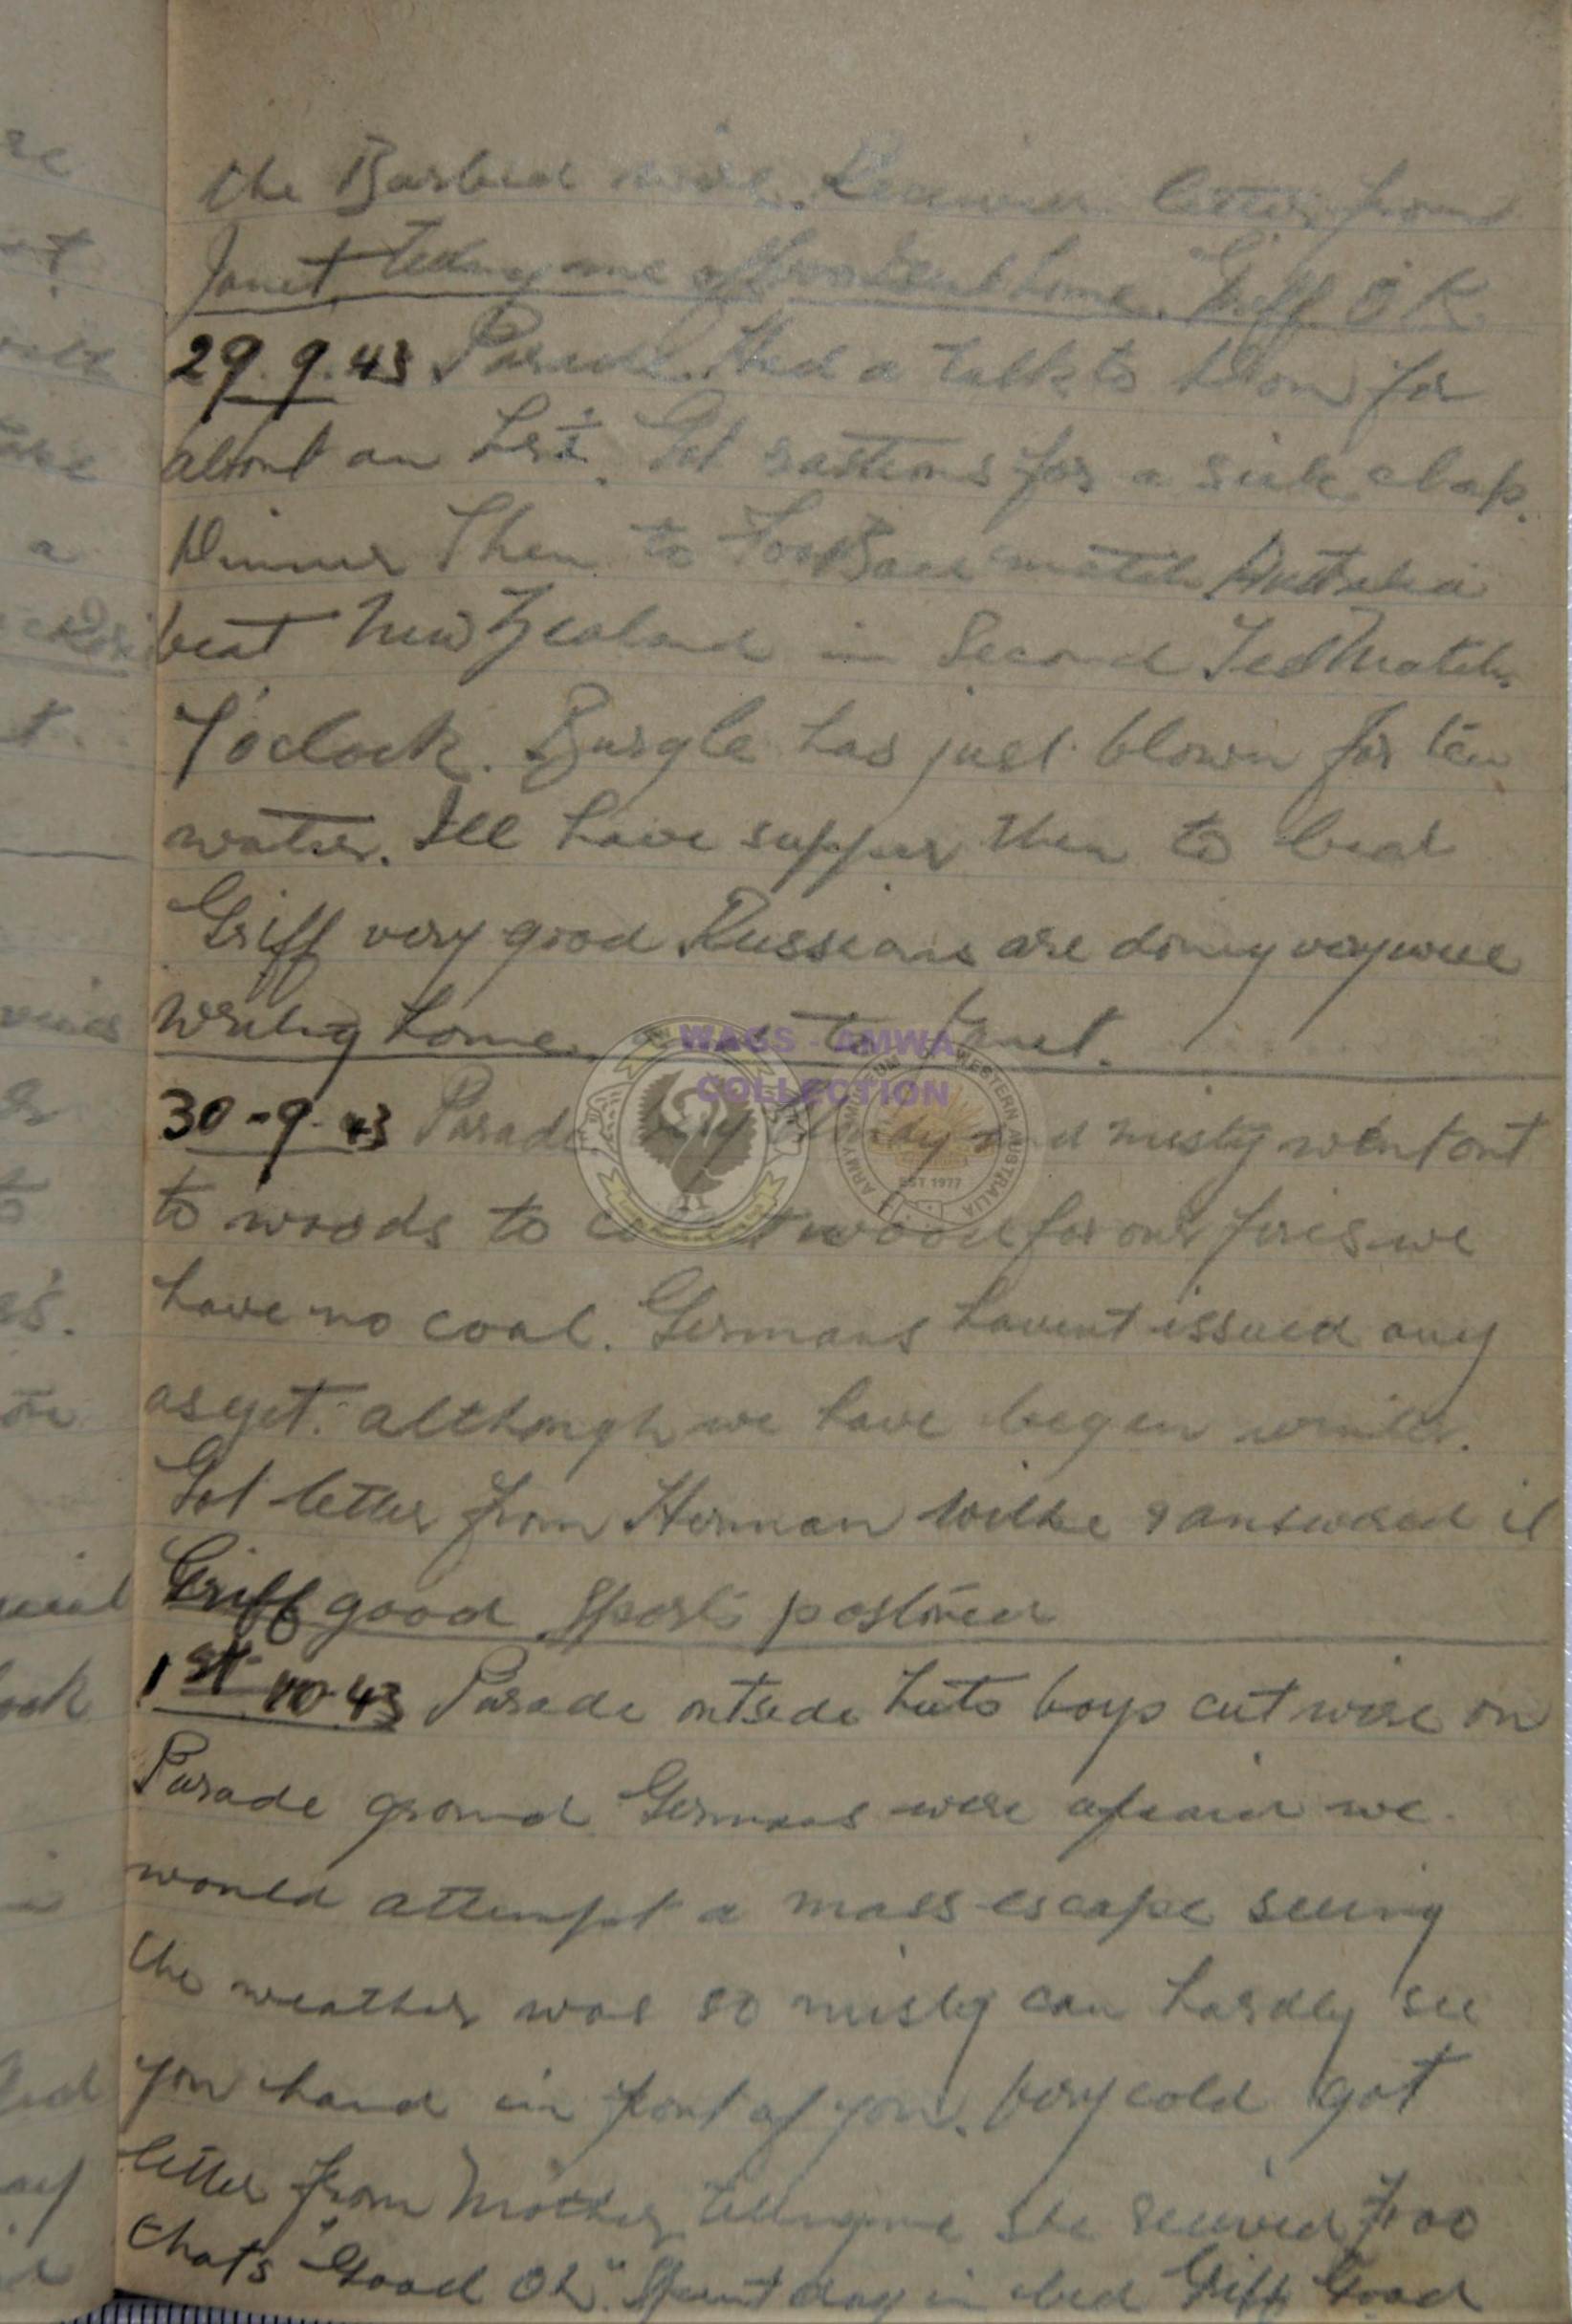 the Barbed wire. Received letter from
Janet telling me home. Griff OK
29.9.43 Parade. Had a talk to for
about an hr ½. Got rastions for a sick chap.
Dinner Then to Foot Ball match Australia
beat New Zealand in Second Test Match.
7 o'clock. Burgle has just blown for tea
water. Ill have supper then to bed
Griff very good Russians are doing very well
Writing home, to Janet.
30-9-43 Parade very and misty went out
to woods to collect wood for our fires we
have no coal. Germans havent issued any
as yet. although we have began winter.
Got letter from Herman Wilke & answered it
Griff good Sports postoned
1st 10-43 Parade outside huts boys cut wire on
Parade ground Germans were afraid we
would attempt a mass escape seeing
the weather was so misty can hardly see
you hand in front of you. Very cold got
letter from Mother telling me she received
thats "Good Oh" Spent day in bed Griff Good
WAGS - AMWA
COLLECTION
WESTERN AUSTRALIA
EST 1977